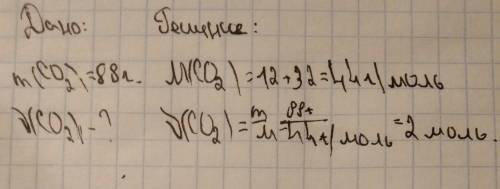 Дано: Решение:
m(CO₂)=88г. M(CO₂)=12+32=44г/моль
ν(CO₂)-? ν(CO₂)=m/M=88г/44г/моль=2 моль.